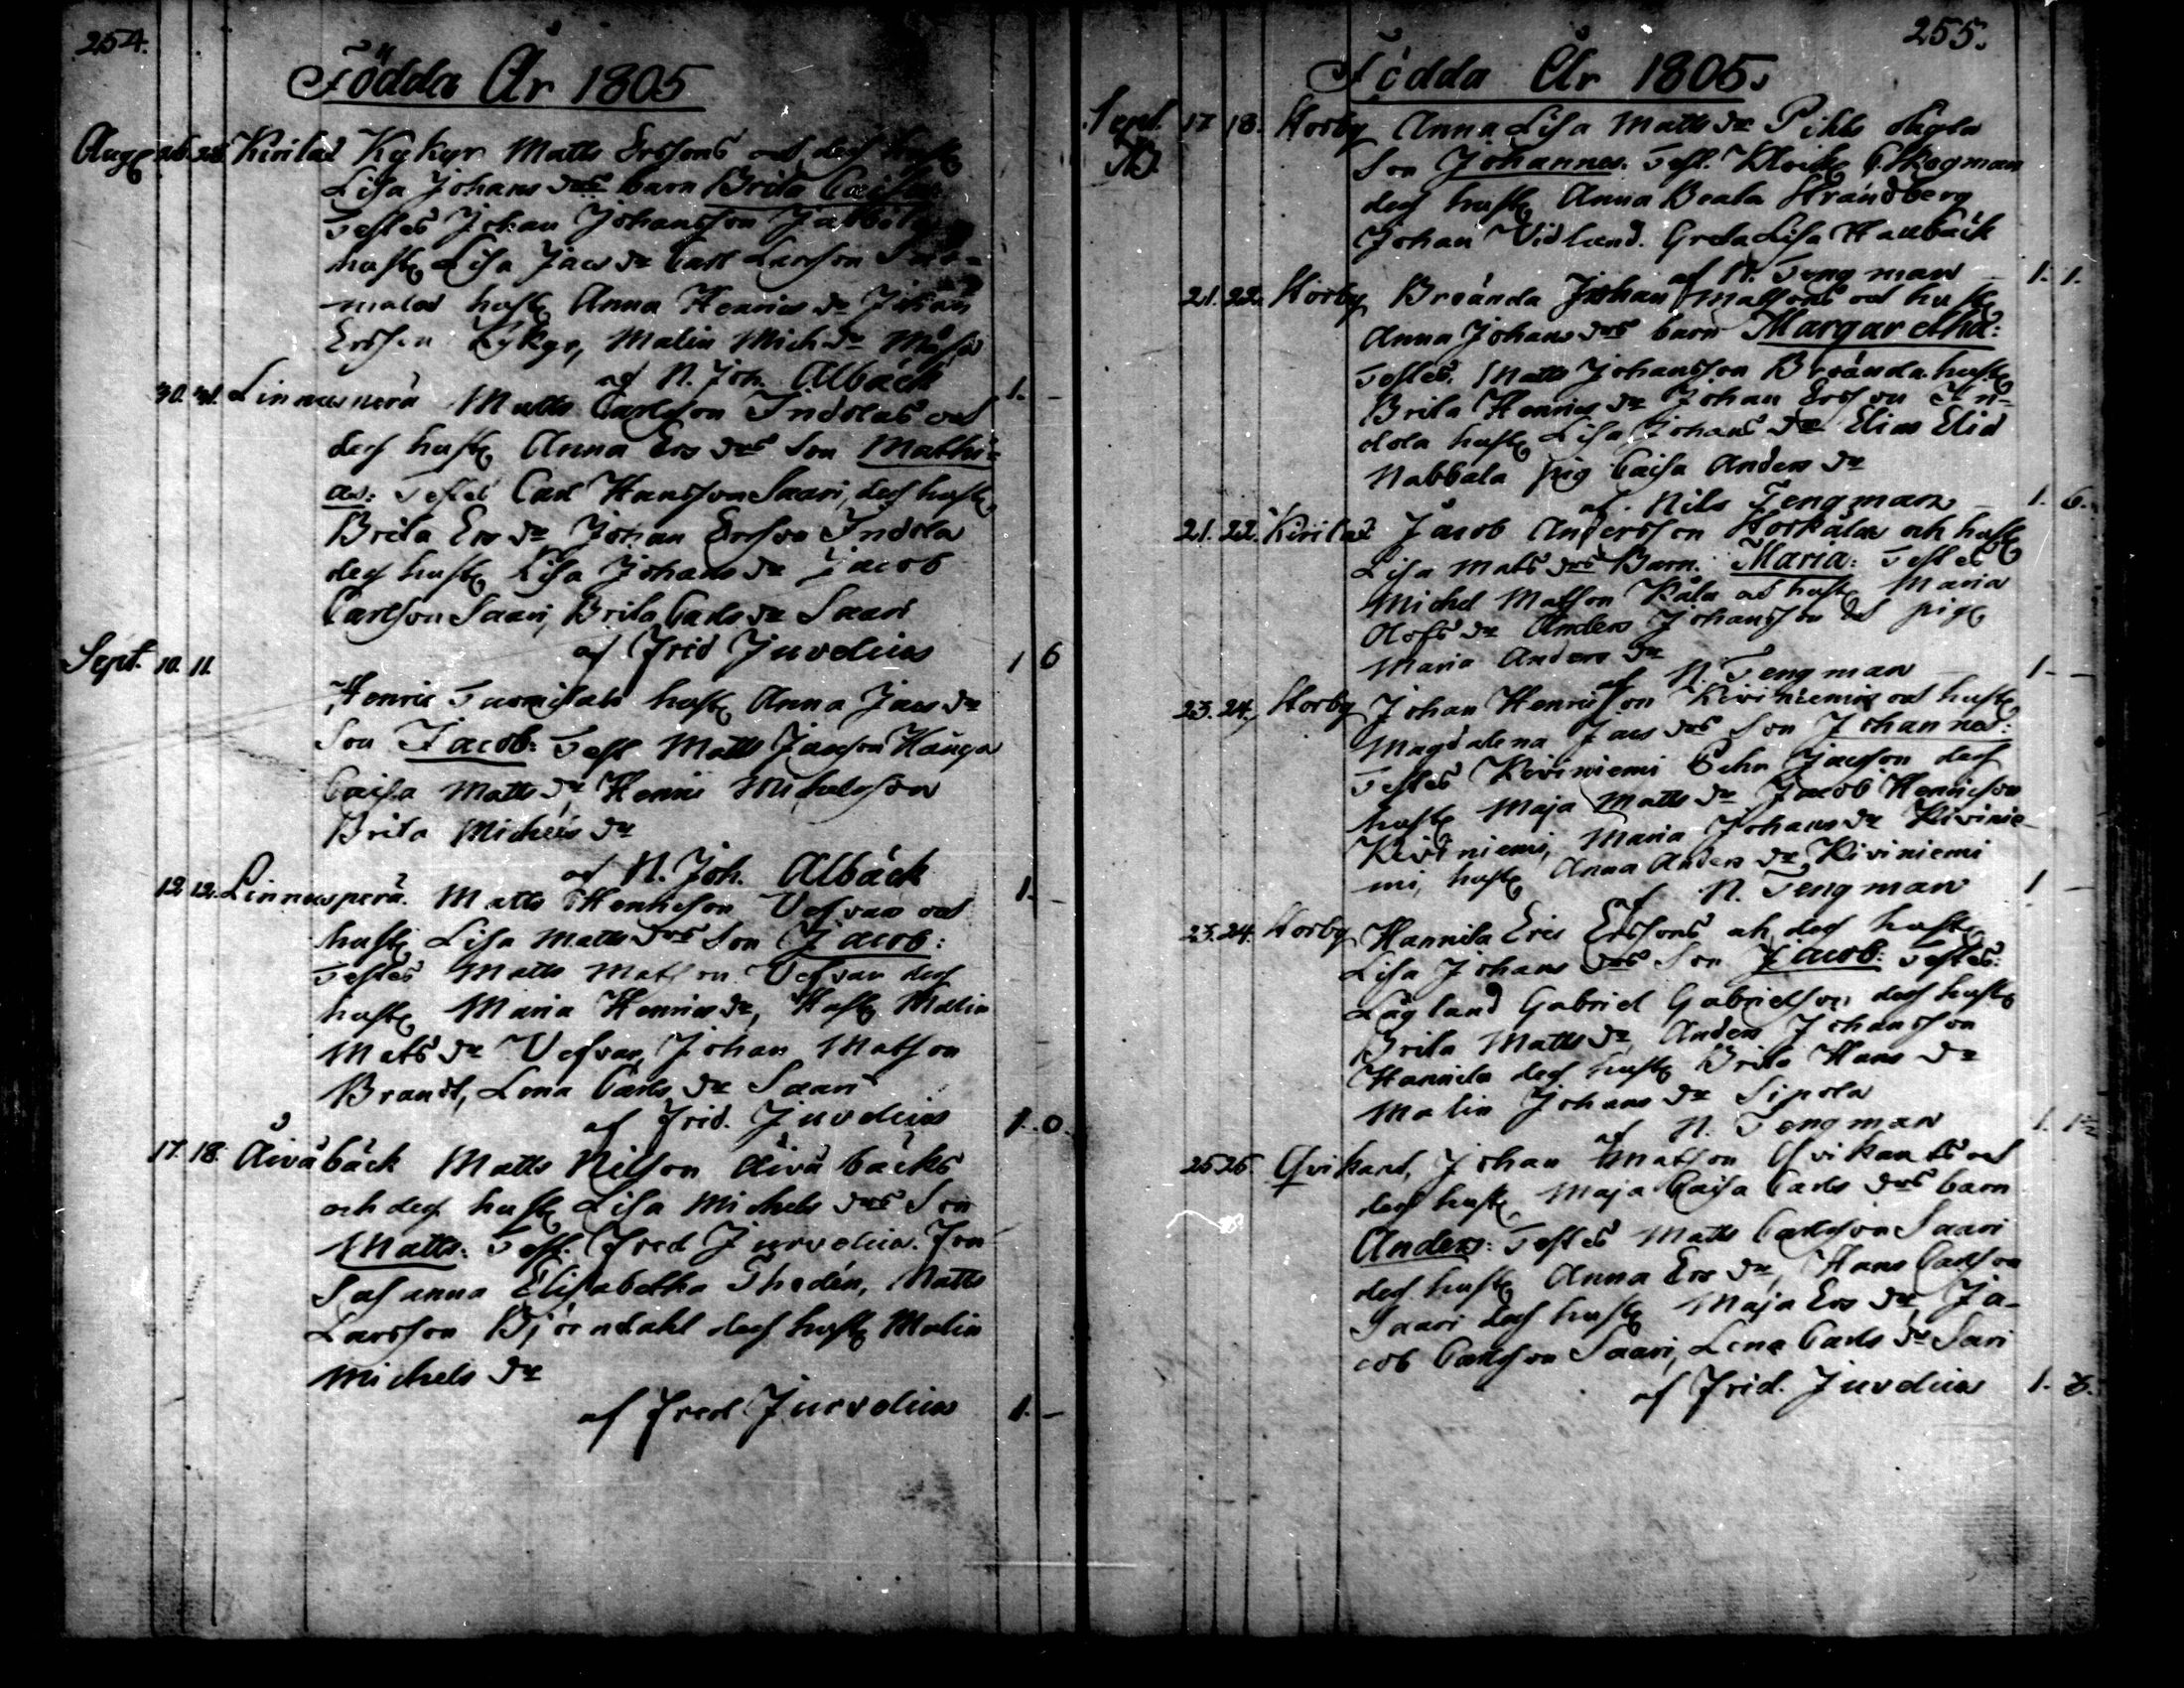 254.
Födda År 1805
Aug 26 28 Kirilax Kykyr Matts Erssons och des hust
Lisa Johans drs barn Brita Caisa
Testes Johan Johansson
hust Lisa Jacs dr Carl Larsson
hust Anna Henrics dr Johan
Ersson Kykyr, Malin Mich dr
af N. Joh. Albäck 1. –
30. 31. Linnusperä Matts Carlsson Indolas och
des hust Anna Ers drs Son Mathi=
as: Testes Carl Hansson Saari, des hust
Brita Ers dr Johan Ersson Indola
des hust Lisa Johans dr Jacob
Carlson Saari, Brita Carls dr Saari
af Frid Juvelius 1 6
Sept. 10. 11.
Henric hust Anna Jacs dr
Son Jacob: Test Matts Jacson Hanga
Caisa Matts dr, Henric Michelsson
Brita Michels dr
af N. Joh. Albäck 1. –
12 12. Linnusperä. Matts Henricson Vesvar och
hust Lisa Matts drs Son Jacob:
Testes Matts Matson Vesvar des
hust Maria Henrics dr, Hust Malin
Mats dr Vesvar, Johan Matson
Brandt, Lena Carls dr Saari
af Frid. Juvelius 1. 0.
17. 18. Äiväbäck Matts Nilson Äiväbäcks
och des hust Lisa Michels drs Son
Matts: Test. Fred Jurvelius. Fru
Susanna Elisabetha Thedén, Matts
Larsson Björndahl des hust Malin
Michels dr
af Fred Jurvelius 1. –
255.
Födda År 1805.
Sept. 17 18. Storby Anna Lisa Matts dr Pihls oägta
Son Johannes. Test. Skogman
des hust Anna Beata Strandberg
Johan Vidlund. Greta Lisa Hallbäck
af N. Tengman – 1. 1.
21. 22. Storby Breända Johan Matsons och hust
Anna Johans drs barn Margaretha:
Testes. Matts Johansson Breända hust
Brita Henrics dr Johan Ersson In=
dola hust Lisa Johans dr Elias Elia
Nabbala pig Caisa Anders dr
af. Nils Tengman 1. 6.
21. 22. Kirilax Jacob Andersson Storkåla och hust
Lisa Mats drs Barn. Maria: Testes
Michel Matson Kåla och hust Maria
Olofs dr Anders Johansson och pig
Maria Anders dr
af N. Tengman 1 – –
23. 24. Storby Johan Henricsson Kiviniemis och hust
Magdalena Jacs drs Son Johannes:
Testes Kiviniemi Jacson des
hust Maja Matts dr Jacob Henricson
Kiviniemi, Maria Johans dr Kivinie-
mi, hust Anna Anders dr Kiviniemi
af N. Tengman 1 –
23. 24. Storby Hannila Eric Erssons och des hust
Lisa Johans drs Son Jacob: Testes:
Lågland Gabriel Gabrielson des hust
Brita Matts dr Anders Johansson
Hannila des hust Brita Hans dr
Malin Johans dr Sipola
af N. Tengman 1.
25 26 Qvikant, Johan Matson Qvikants och
des hust Maja Caisa Carls drs barn
Anders: Testes Matts Carlsson Saari
des hust Anna Ers dr, Hans Carlson
Saari des hust Maja Ers dr, Ja-
cob Carlsson Saari, Lena Carls dr Sari
af Frid. Juvelius 1. 8.